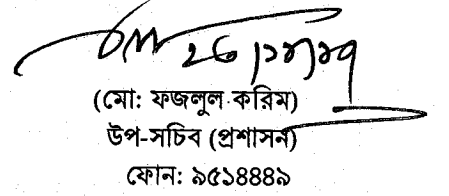 (মো: ফজলুল করিম)
উপ-সচিব (প্রশাসন)
ফোন: ৯৫১৪৪৪৯